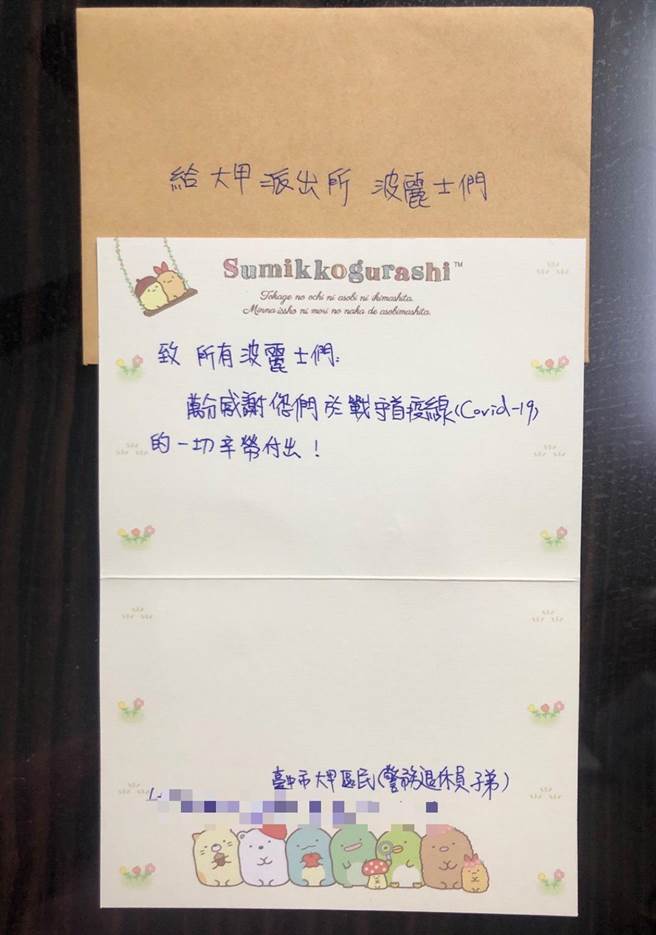 給大甲派出所 波麗士們
Sumikkogurashi™
Tokage no ochi ni asobi ni ikimashita.
Minna issho ni mori no naka de asobimashita.
致 所有波麗士們:
萬分感謝您們於戰守首疫線(Covid-19)
的一切辛勞付出!
臺中市大甲區民(警察退休員子弟)